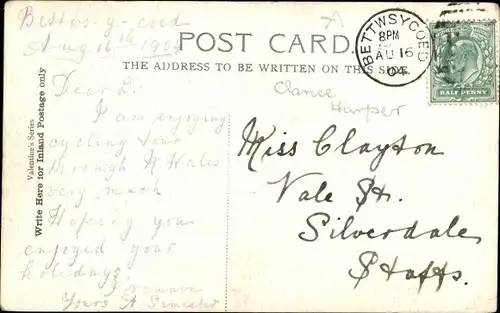 Bettws-y-coed
Aug 16th 1904
POST CARD.
THE ADDRESS TO BE WRITTEN ON THIS SIDE.
BETTWSYCOED
8PM
AU 16
04
HALF PENNY
Valentine's Series
Write Here for Inland Postage only
Dear D:
I am enjoying
cycling tour
through N Wales
very much.
Hoping you
enjoyed your
holidays.
I remain
Yours A
Clance
Harper
Miss Clayton
Vale St.
Silverdale
Staffs.